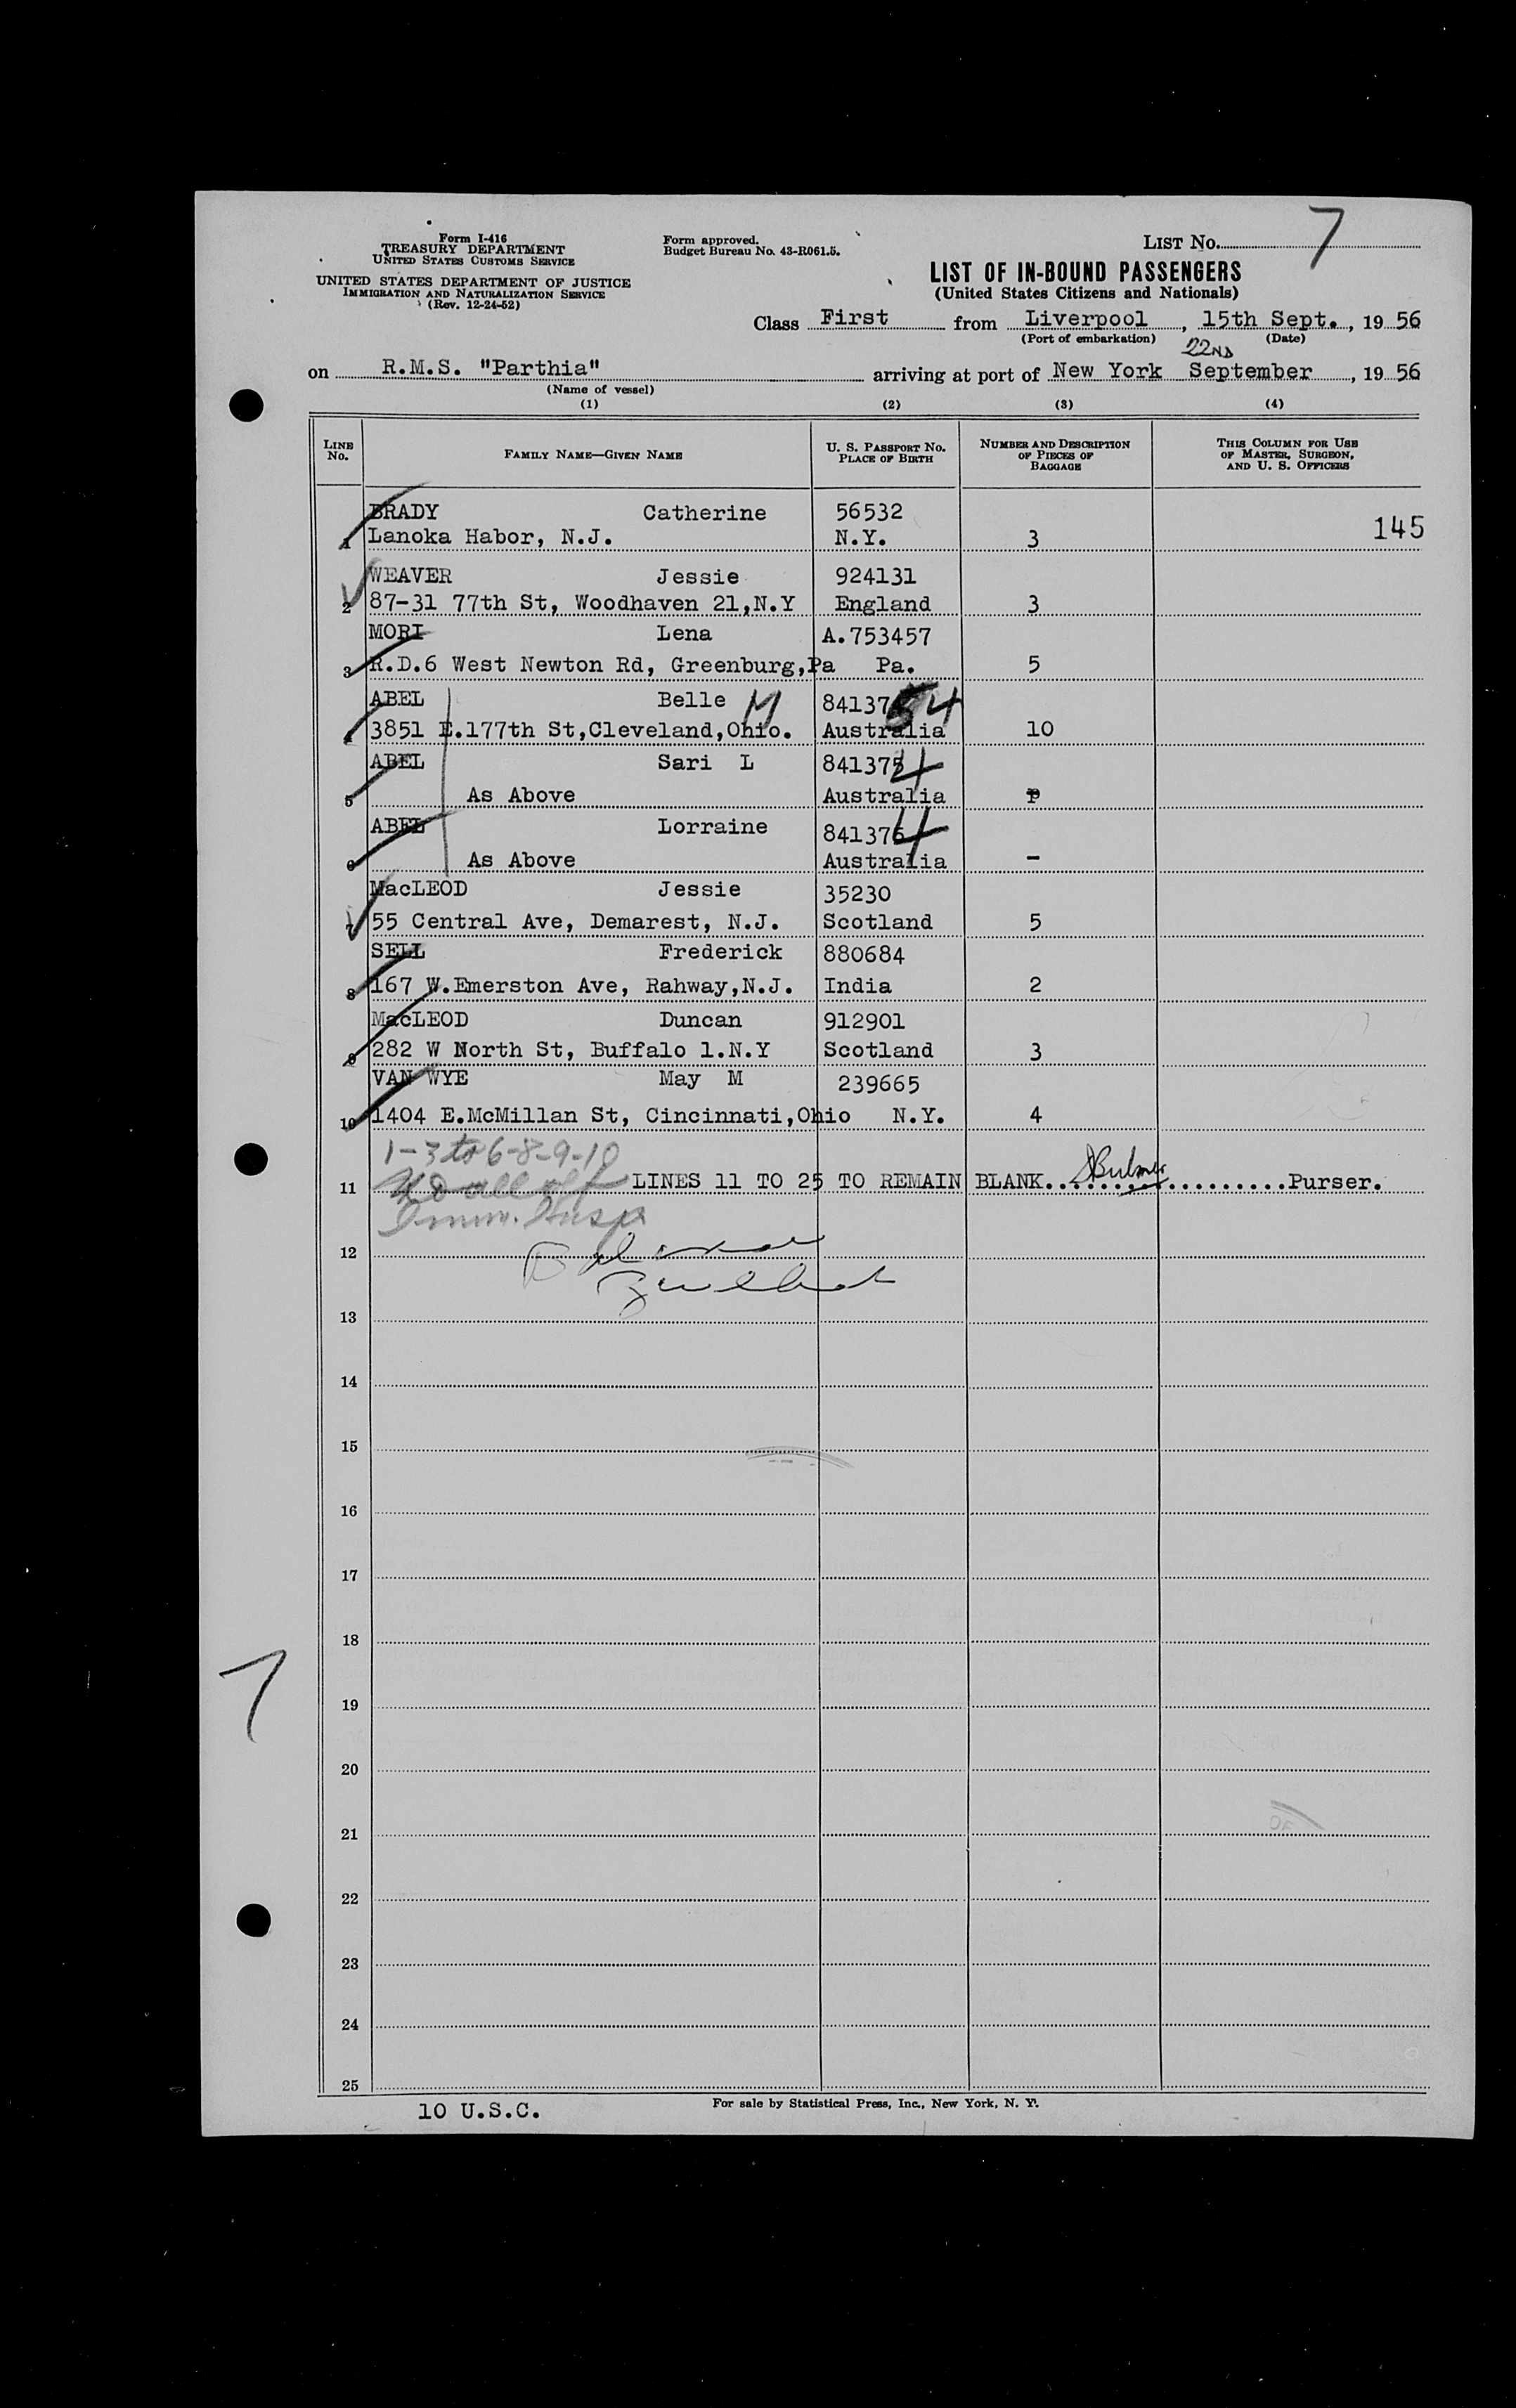 Form I-416
TREASURY DEPARTMENT
UNITED STATES CUSTOMS SERVICE
UNITED STATES DEPARTMENT OF JUSTICE
IMMIGRATION AND NATURALIZATION SERVICE
(Rev. 12-24-52)
Form approved.
Budget Bureau No. 43-R061.5.
LIST No. 7
LIST OF IN-BOUND PASSENGERS
(United States Citizens and Nationals)
Class First from Liverpool, 15th Sept., 19 56
(Port of embarkation) (Date)
22ND
on R.M.S. "Parthia" arriving at port of New York September, 19 56
(Name of vessel)
(1) (2) (3) (4)
LINE No. FAMILY NAME—GIVEN NAME U. S. PASSPORT No. PLACE OF BIRTH NUMBER AND DESCRIPTION OF PIECES OF BAGGAGE THIS COLUMN FOR USE OF MASTER, SURGEON, AND U. S. OFFICERS
BRADY Catherine 56532
1 Lanoka Habor, N.J. N.Y. 3 145
WEAVER Jessie 924131
2 87-31 77th St, Woodhaven 21,N.Y England 3
MORI Lena A.753457
3 R.D.6 West Newton Rd, Greenburg,Pa Pa. 5
ABEL Belle M 84137 54
4 3851 E.177th St,Cleveland,Ohio. Australia 10
ABEL Sari L 841375 4
5 As Above Australia
ABEL Lorraine 841376 4
6 As Above Australia -
MacLEOD Jessie 35230
7 55 Central Ave, Demarest, N.J. Scotland 5
SELL Frederick 880684
8 167 W.Emerston Ave, Rahway,N.J. India 2
MacLEOD Duncan 912901
9 282 W North St, Buffalo 1.N.Y Scotland 3
VAN WYE May M 239665
10 1404 E.McMillan St, Cincinnati,Ohio N.Y. 4
1-3 to 6-8-9-10
11 LINES 11 TO 25 TO REMAIN BLANK...................Purser.
Imm. Insp
12
13
14
15
16
17
18
7
19
20
21
22
23
24
25
10 U.S.C.
For sale by Statistical Press, Inc., New York, N. Y.